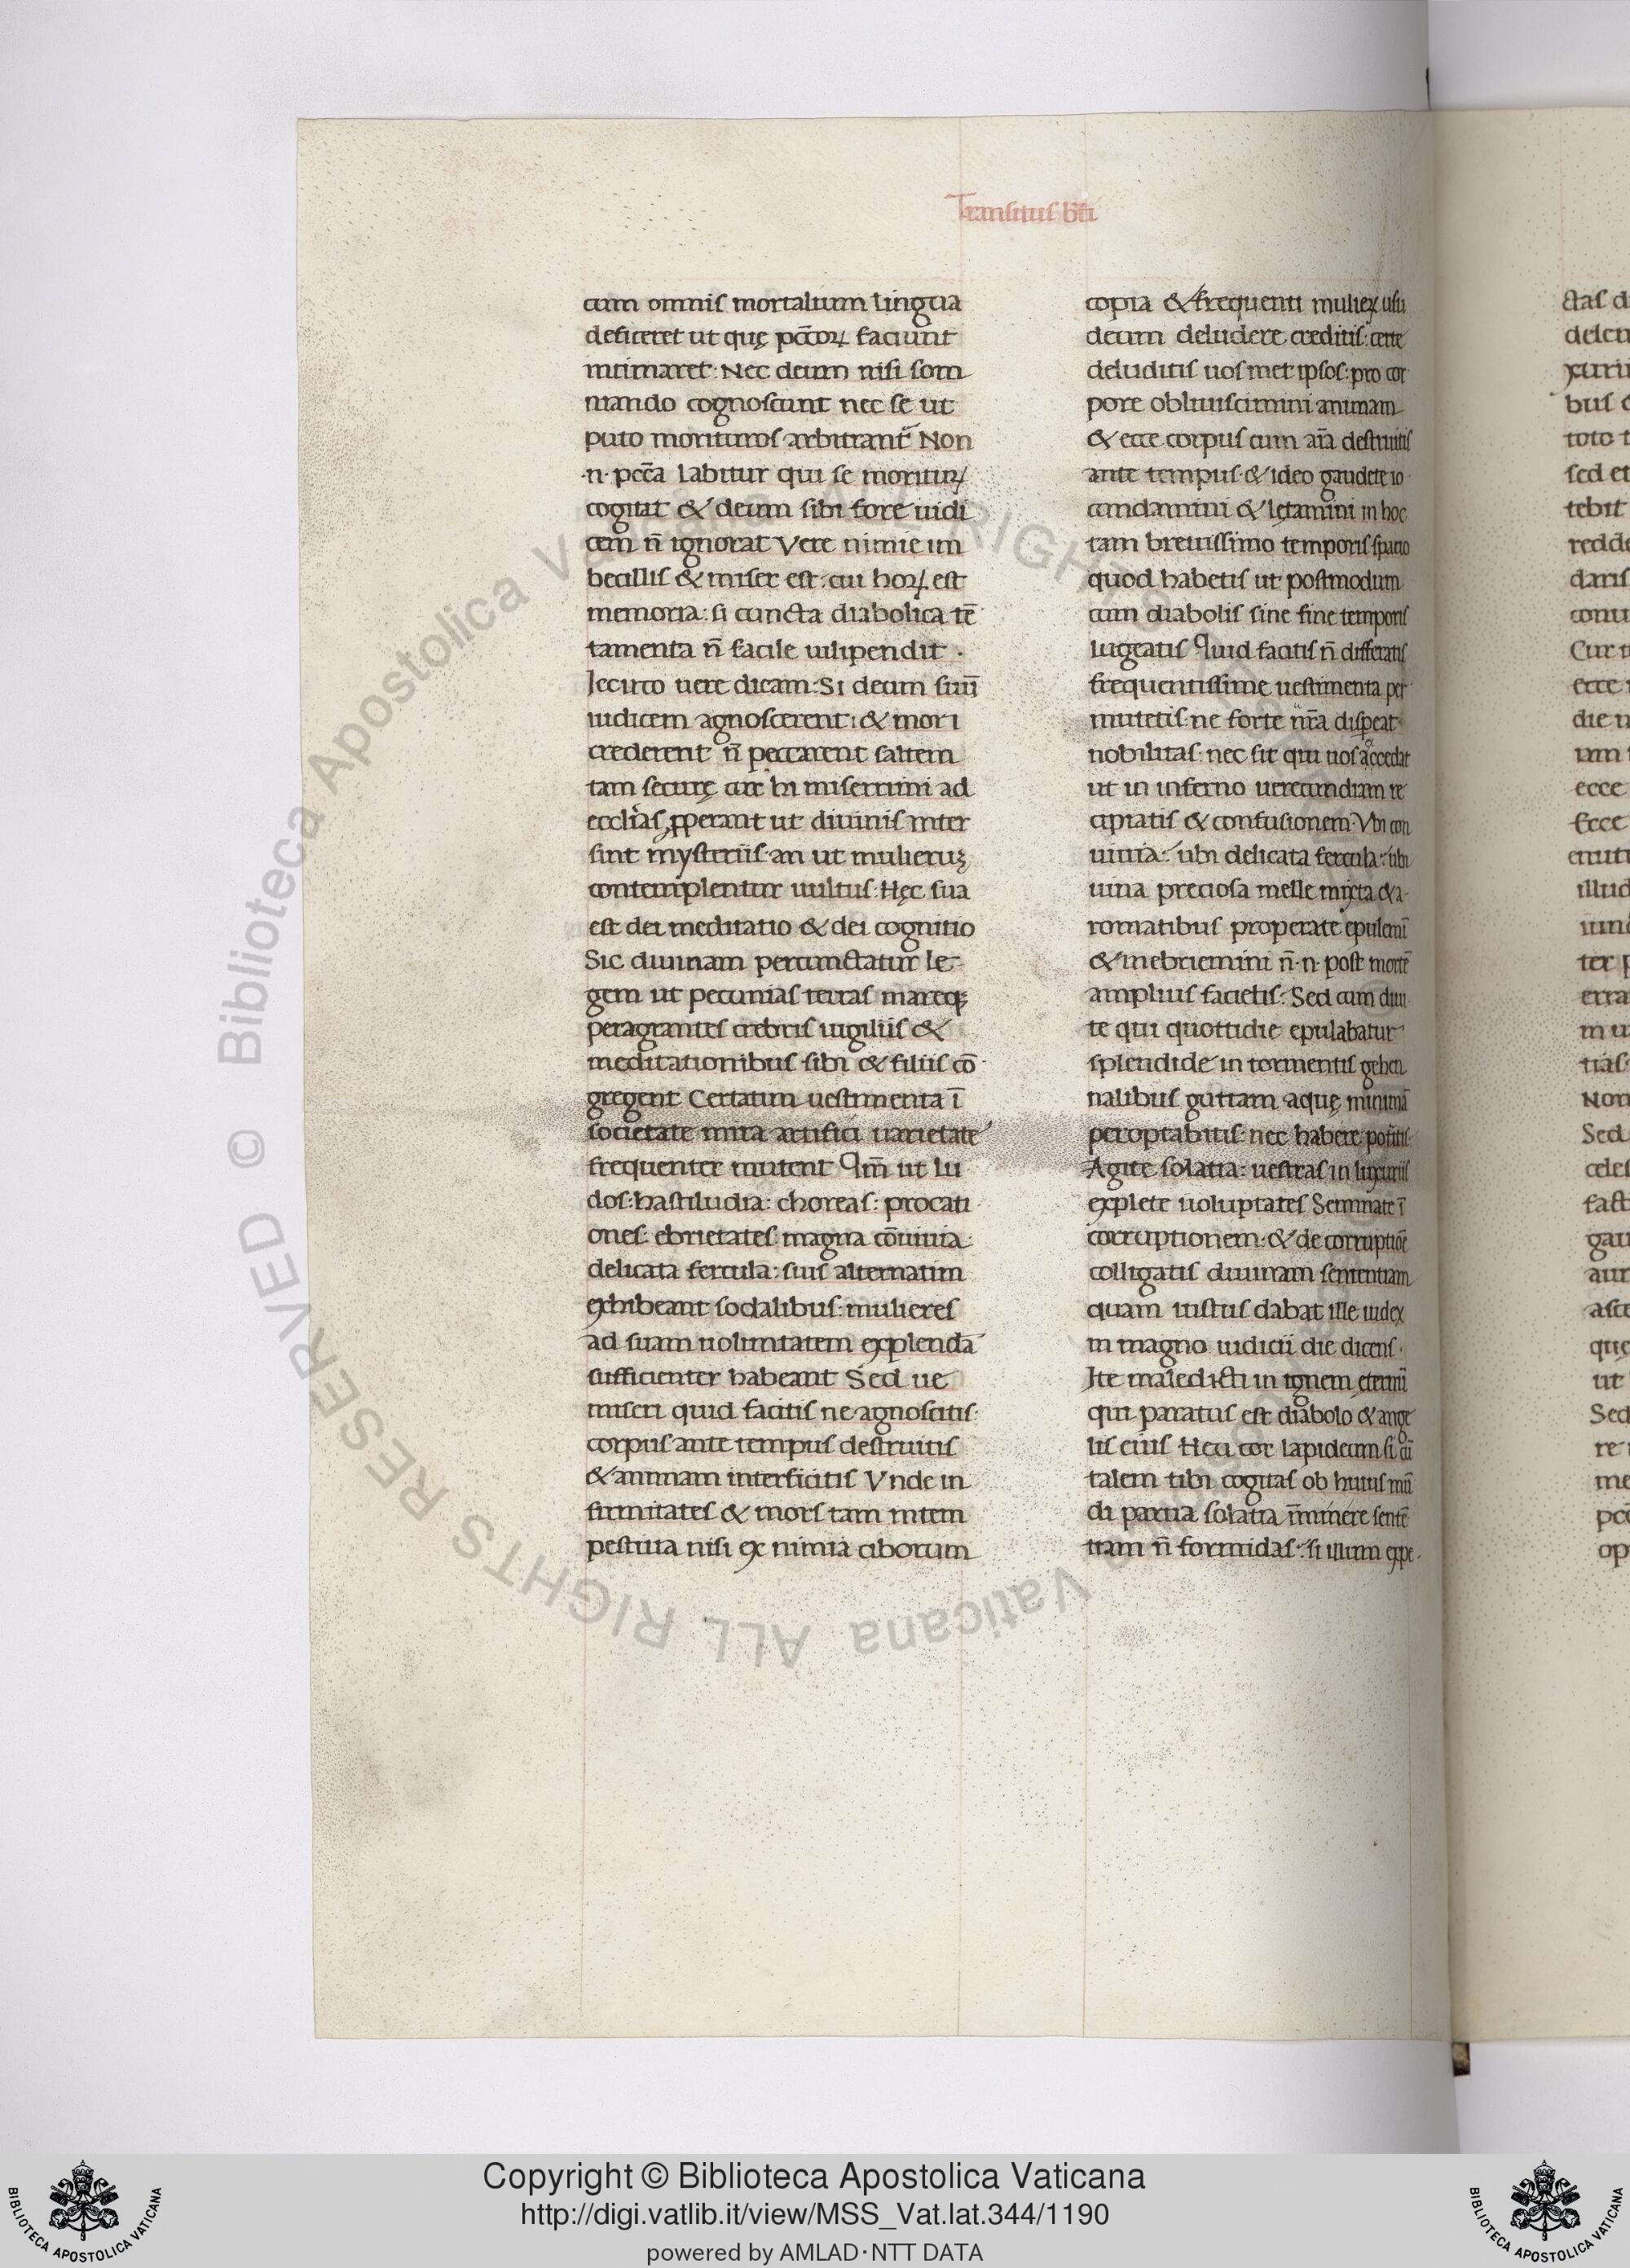 Transitus bt̄i
cum omnis mortalium lingua
deficeret ut quę pc̄coꝝ faciunt
intimaret· Nec deum nisi som
niando cognoscunt nec se ut
puto morituros arbitrant᷑ Non
·n· pcc̄a labitur qui se moritur᷑
cogitat & deum sibi fore iudi
cem n̄ ignorat Vere nimie im
becillis & miser est: cui hoꝝ est
memoria: si cuncta diabolica tē
tamenta n̄ facile uilipendit ·
Jccirco uere dicam: Si deum suū
iudicem agnoscerent: & mori
crederent n̄ peccarent saltem
tam secure cur hi miserrimi ad
ecclias ꝓperant ut diuinis inter
sint mysteriis· an ut mulieruꝫ
contemplentur uultus: Hęc sua
est dei meditatio & dei cognitio
Sic diuinam percunctatur le-
gem ut pecunias terras mareqꝫ
peragrantes crebris uigiliis &
meditationibus sibi & filiis cō
gregent Certatim uestimenta ī
societate mira artifici uarietate
frequenter mutent Qm̄ ut lu
dos: hastiludia: choreas: procati
ones: ebrietates: magna cōuiuia:
delicata fercula: suis alternatim
exhibeant sodalibus: mulieres
ad suam uoluntatem explendā
sufficienter habeant Sed ue
miseri quid facitis ne agnoscitis:
corpus ante tempus destruitis
& animam interficitis Vnde in
firmitates & mors tam intem
pestiua nisi ex nimia ciborum
copia & frequenti mulieꝝ usu
deum deludere creditis: certe
deluditis uos met ipsos: pro cor
pore obliuiscimini animam
& ecce corpus cum aīa destruitis
ante tempus· & ideo gaudete io
cundamini & lętamini in hoc
tam breuissimo temporis spatio
quod habetis ut postmodum
cum diabolis sine fine temporis
lugeatis Quid facitis n̄ differatis
frequentissime uestimenta per
mutetis: ne forte nr̄a dispeat
nobilitas: nec sit qui uos accedat
ut in inferno uerecundiam re
cipiatis & confusionem· Vbi con
uiuia: ubi delicata fercula: ubi
uina preciosa melle mixta & a-
romatibus properate epulemī
& inebriemini n̄ ·n· post mortē
amplius facietis: Sed cum diui
te qui quottidie epulabatur
splendide in tormentis gehen
nalibus guttam aquę minimā
peroptabitis: nec habere potitis·
Agite solatia: uestras in luxuriis
explete uoluptates Seminate ī
corruptionem: & de corruptiōe
colligatis diuinam sententiam
quam iustus dabat ille iudex
in magno iudicii die dicens ·
Ite maledicti in ignem eternū
qui paratus est diabolo & ange
lis eius Heu cor lapideum si cū
talem tibi cogitas ob huius mū
di parua solatia īminere sentē
tiam n̄ formidas: si illum expe
Copyright © Biblioteca Apostolica Vaticana
http://digi.vatlib.it/view/MSS_Vat.lat.344/1190
powered by AMLAD·NTT DATA
BIBLIOTECA APOSTOLICA VATICANA
BIBLIOTECA APOSTOLICA VATICANA
© Biblioteca Apostolica Vaticana ALL RIGHTS RESERVED